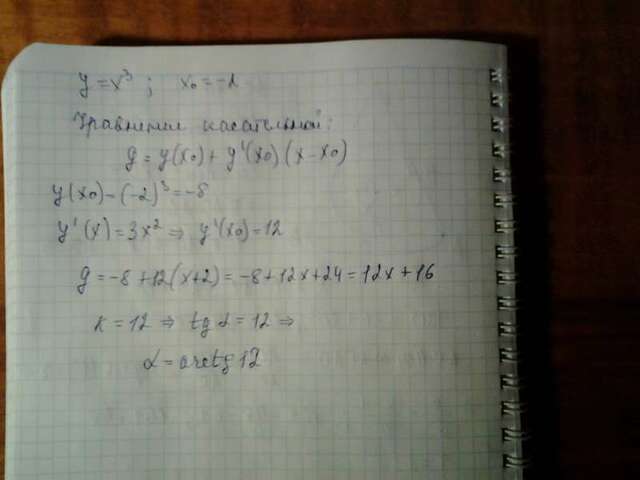 y = x³ ; x₀ = -2
Уравнение касательной:
y = y(x₀) + y'(x₀)(x-x₀)
y(x₀) = (-2)³ = -8
y'(x) = 3x² ⇒ y'(x₀) = 12
y = -8 + 12(x+2) = -8 + 12x + 24 = 12x + 16
k = 12 ⇒ tg α = 12 ⇒
α = arctg 12